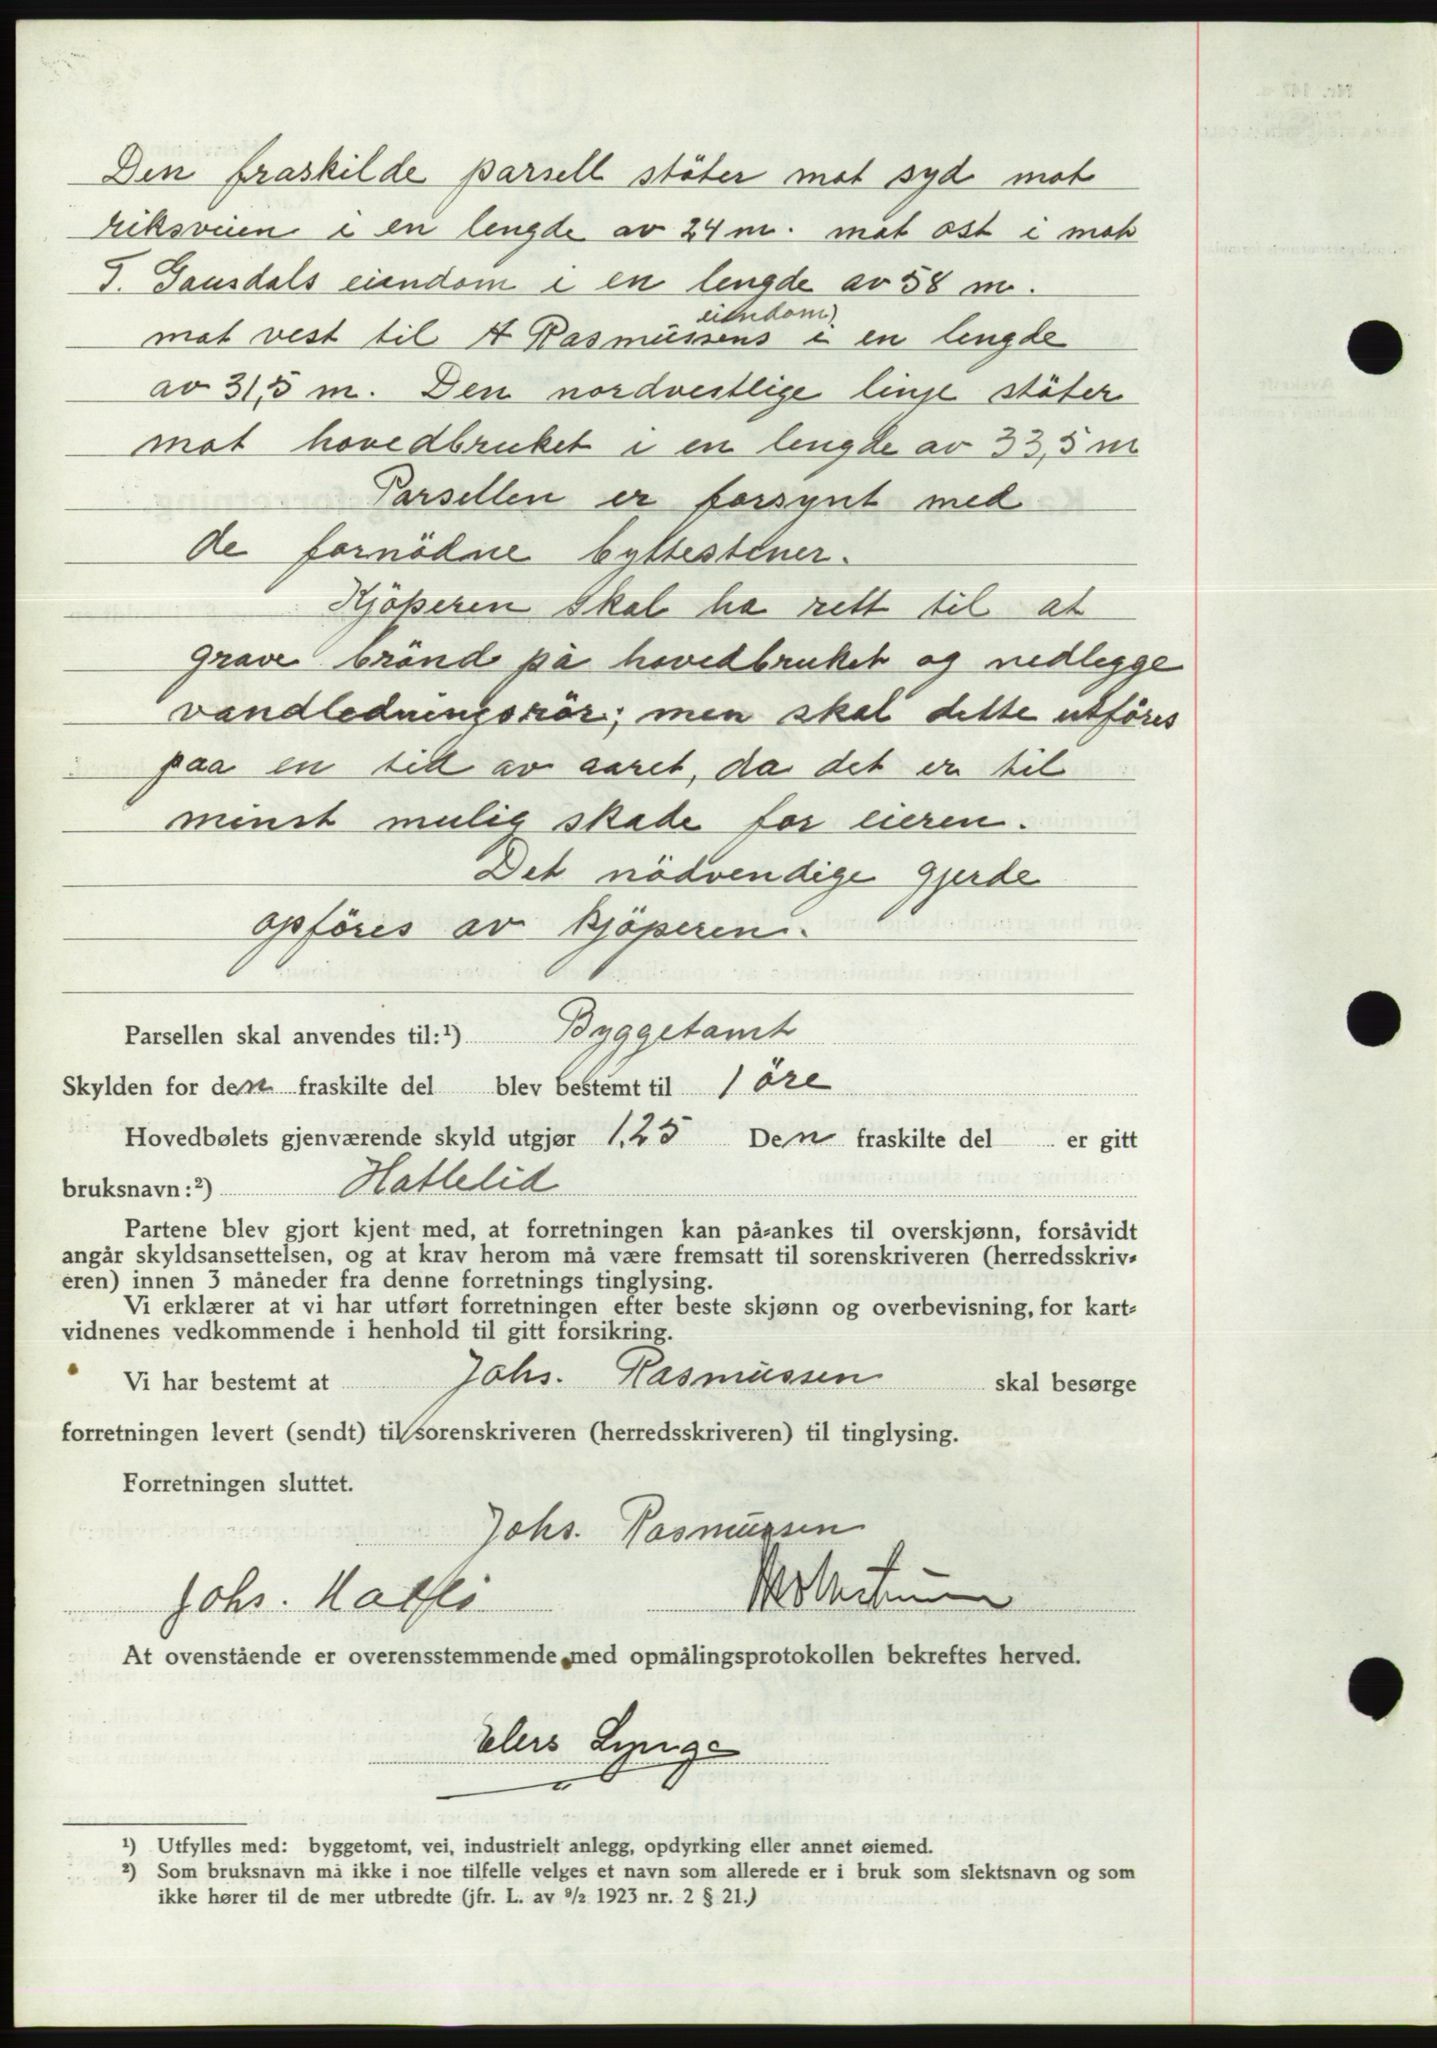 Den fraskilde parsell stöter mot syd mot
riksveien i en lengde av 24 m. mot ost i mot
T. Gausdals eiendom i en lengde av 58 m.
eiendom
mot vest til A Rasmussens i en lengde
av 31,5 m. Den nordvestlige linje stöter
mot hovedbruket i en lengde av 33,5 m
Parsellen er forsynt med
de fornödne byttestener.
Kjöperen skal ha rett til at
grave brönd på hovedbruket og nedlegge
vandledningsrör; men skal dette utföres
paa en tid av aaret, da det er til
minst mulig skade for eieren.
Det nödvendige gjerde
opföres av kjöperen.
Parsellen skal anvendes til:¹) Byggetomt
Skylden for den fraskilte del blev bestemt til 1 öre
Hovedbølets gjenværende skyld utgjør 1,25 Den fraskilte del er gitt
bruksnavn:²) Hattelid
Partene blev gjort kjent med, at forretningen kan på-ankes til overskjønn, forsåvidt
angår skyldsansettelsen, og at krav herom må være fremsatt til sorenskriveren (herredsskriv-
eren) innen 3 måneder fra denne forretnings tinglysing.
Vi erklærer at vi har utført forretningen efter beste skjønn og overbevisning, for kart-
vidnenes vedkommende i henhold til gitt forsikring.
Vi har bestemt at Johs. Rasmussen skal besørge
forretningen levert (sendt) til sorenskriveren (herredsskriveren) til tinglysing.
Forretningen sluttet.
Johs. Rasmussen
Johs.
At ovenstående er overensstemmende med opmålingsprotokollen bekreftes herved.
Elers Lynge
¹) Utfylles med: byggetomt, vei, industrielt anlegg, opdyrking eller annet øiemed.
²) Som bruksnavn må ikke i noe tilfelle velges et navn som allerede er i bruk som slektsnavn og som
ikke hører til de mer utbredte (jfr. L. av ⁹/₂ 1923 nr. 2 § 21.)